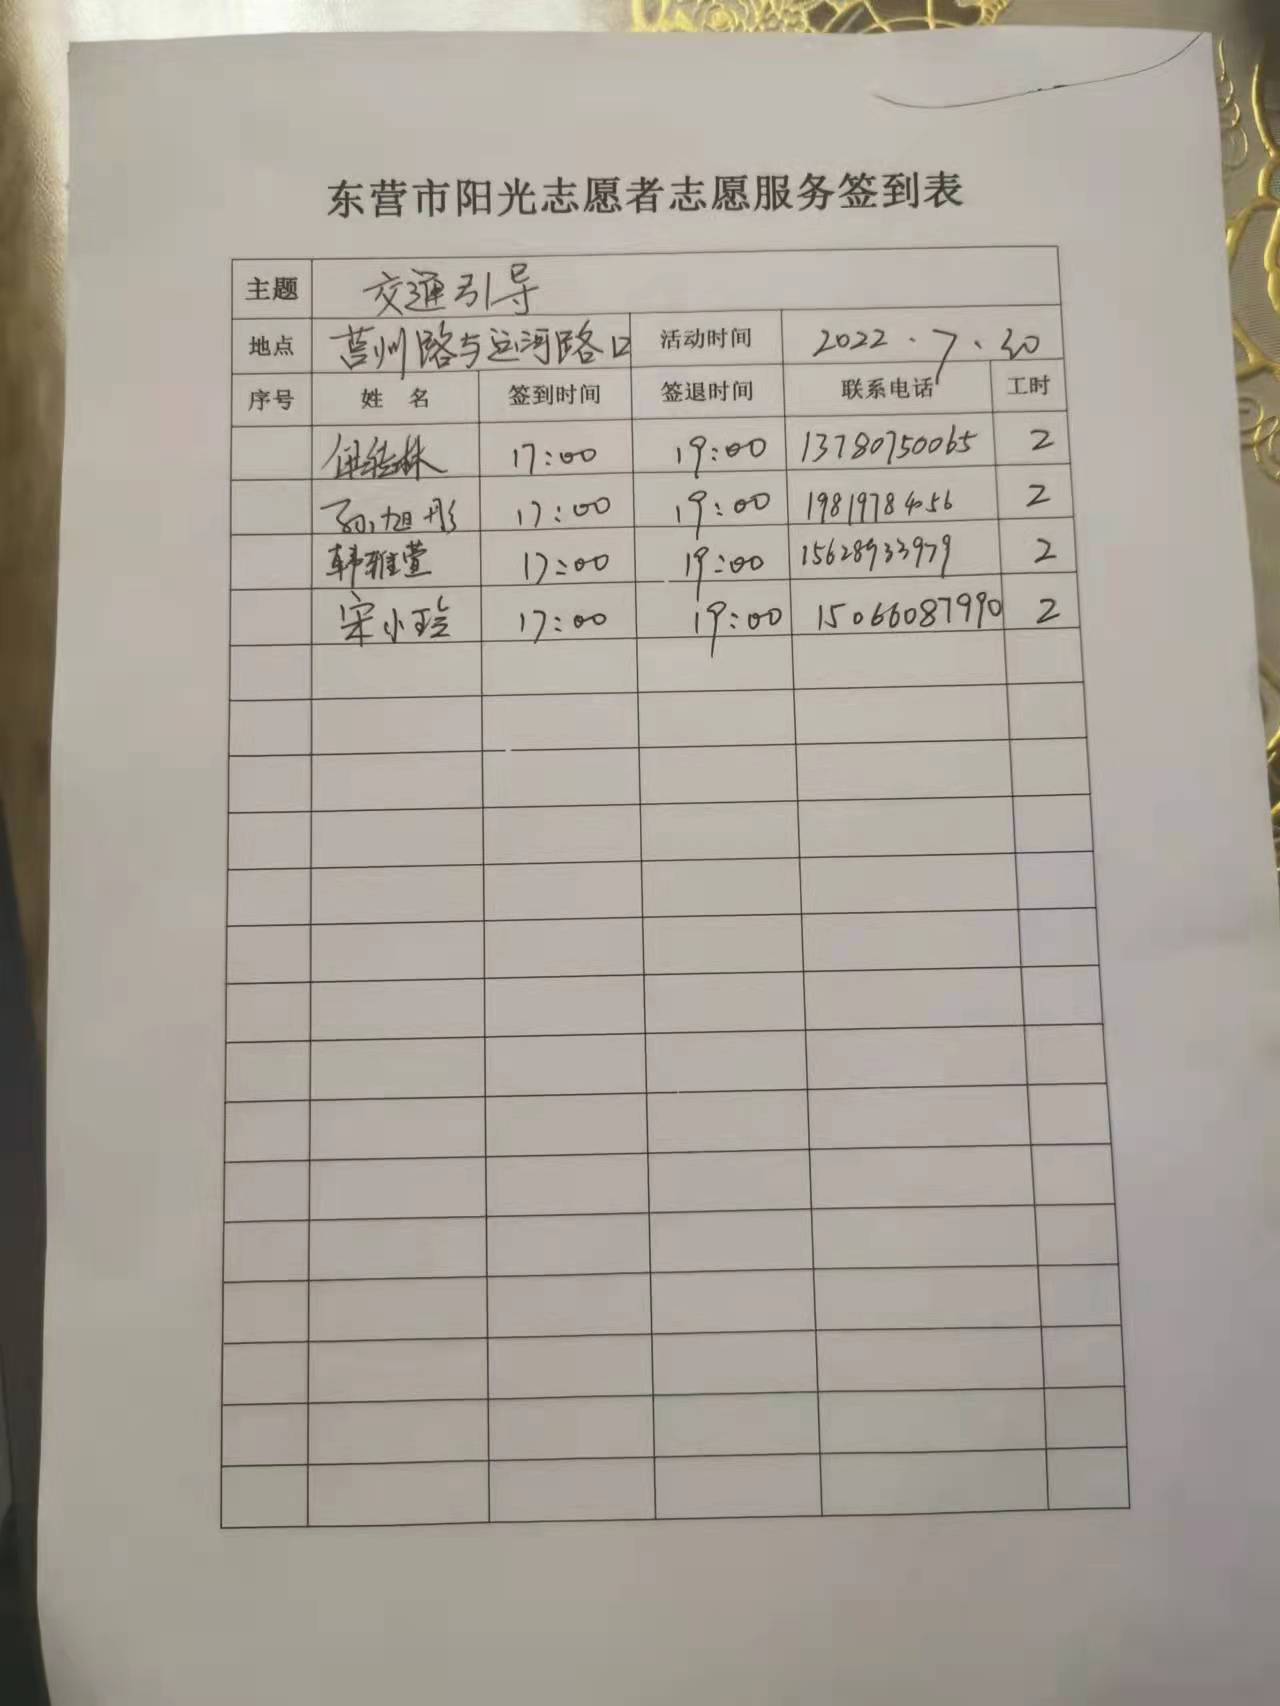 东营市阳光志愿者志愿服务签到表
主题 交通引导
地点 莒州路与运河路口 活动时间 2022.7.30
序号 姓名 签到时间 签退时间 联系电话 工时
17:00 19:00 13780750065 2
孙旭彤 17:00 19:00 19819784056 2
韩雅萱 17:00 19:00 15628933979 2
宋小玲 17:00 19:00 15066087990 2